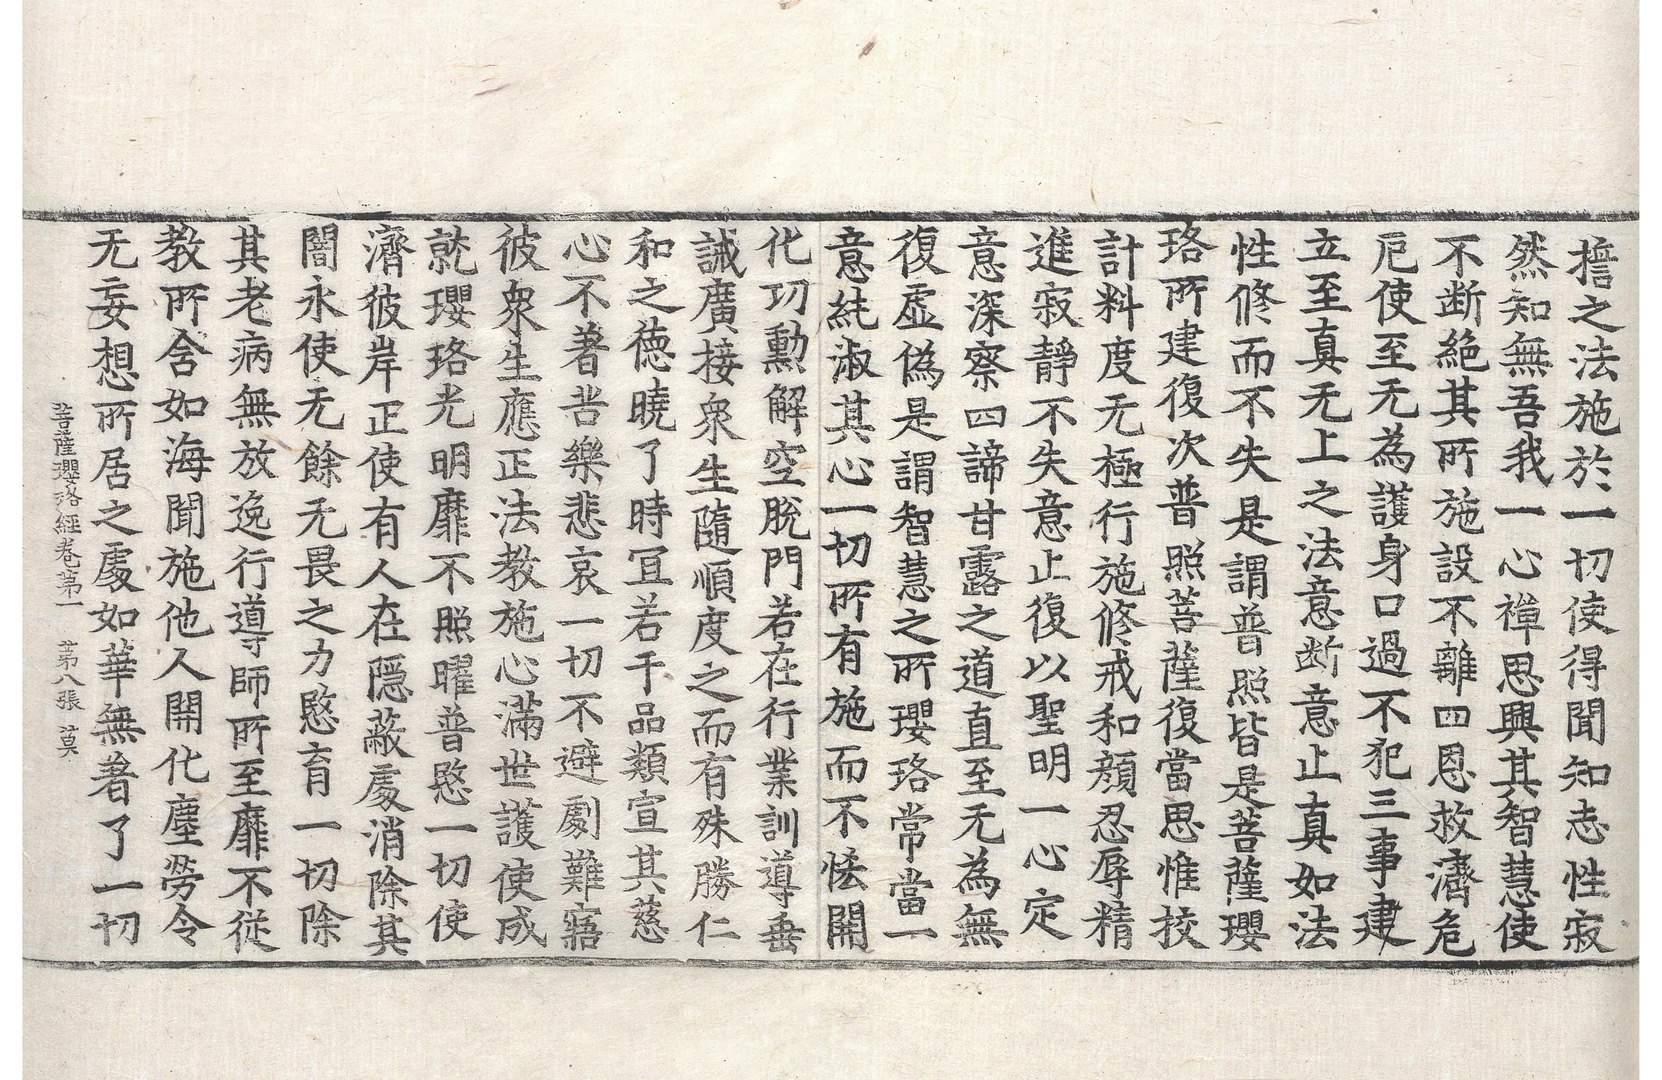 擔之法施於一切使得聞知志性寂
然知無吾我一心禪思興其智慧使
不断絕其所施設不離四恩救濟危
厄使至无為護身口過不犯三事建
立至真无上之法意断意止真如法
性修而不失是謂普照皆是菩薩瓔
珞所建復次普照菩薩復當思惟挍
計料度无極行施修戒和顏忍辱精
進寂靜不失意止復以聖明一心定
意深察四諦甘露之道直至无為無
復虛偽是謂智慧之所瓔珞常當一
意純淑其心一切所有施而不恡開
化功勳解空脫門若在行業訓導垂
誡廣接眾生隨順度之而有殊勝仁
和之德曉了時冝若干品類宣其慈
心不著苦樂悲哀一切不避劇難寤
彼眾生應正法教施心滿世護使成
就瓔珞光明靡不照曜普愍一切使
濟彼岸正使有人在隱蔽處消除其
闇永使无餘无畏之力愍育一切除
其老病無放逸行導師所至靡不從
教所舍如海聞施他人開化塵勞令
无妄想所居之處如華無著了一切
菩薩瓔珞經卷第一 第八張 莫